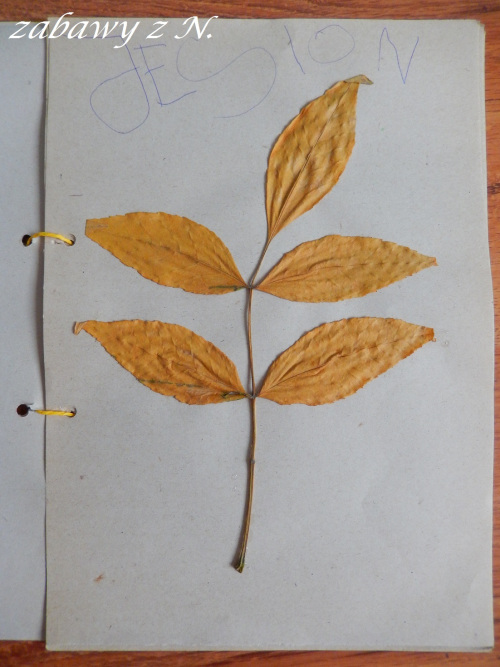 zabawy z N.
JESION